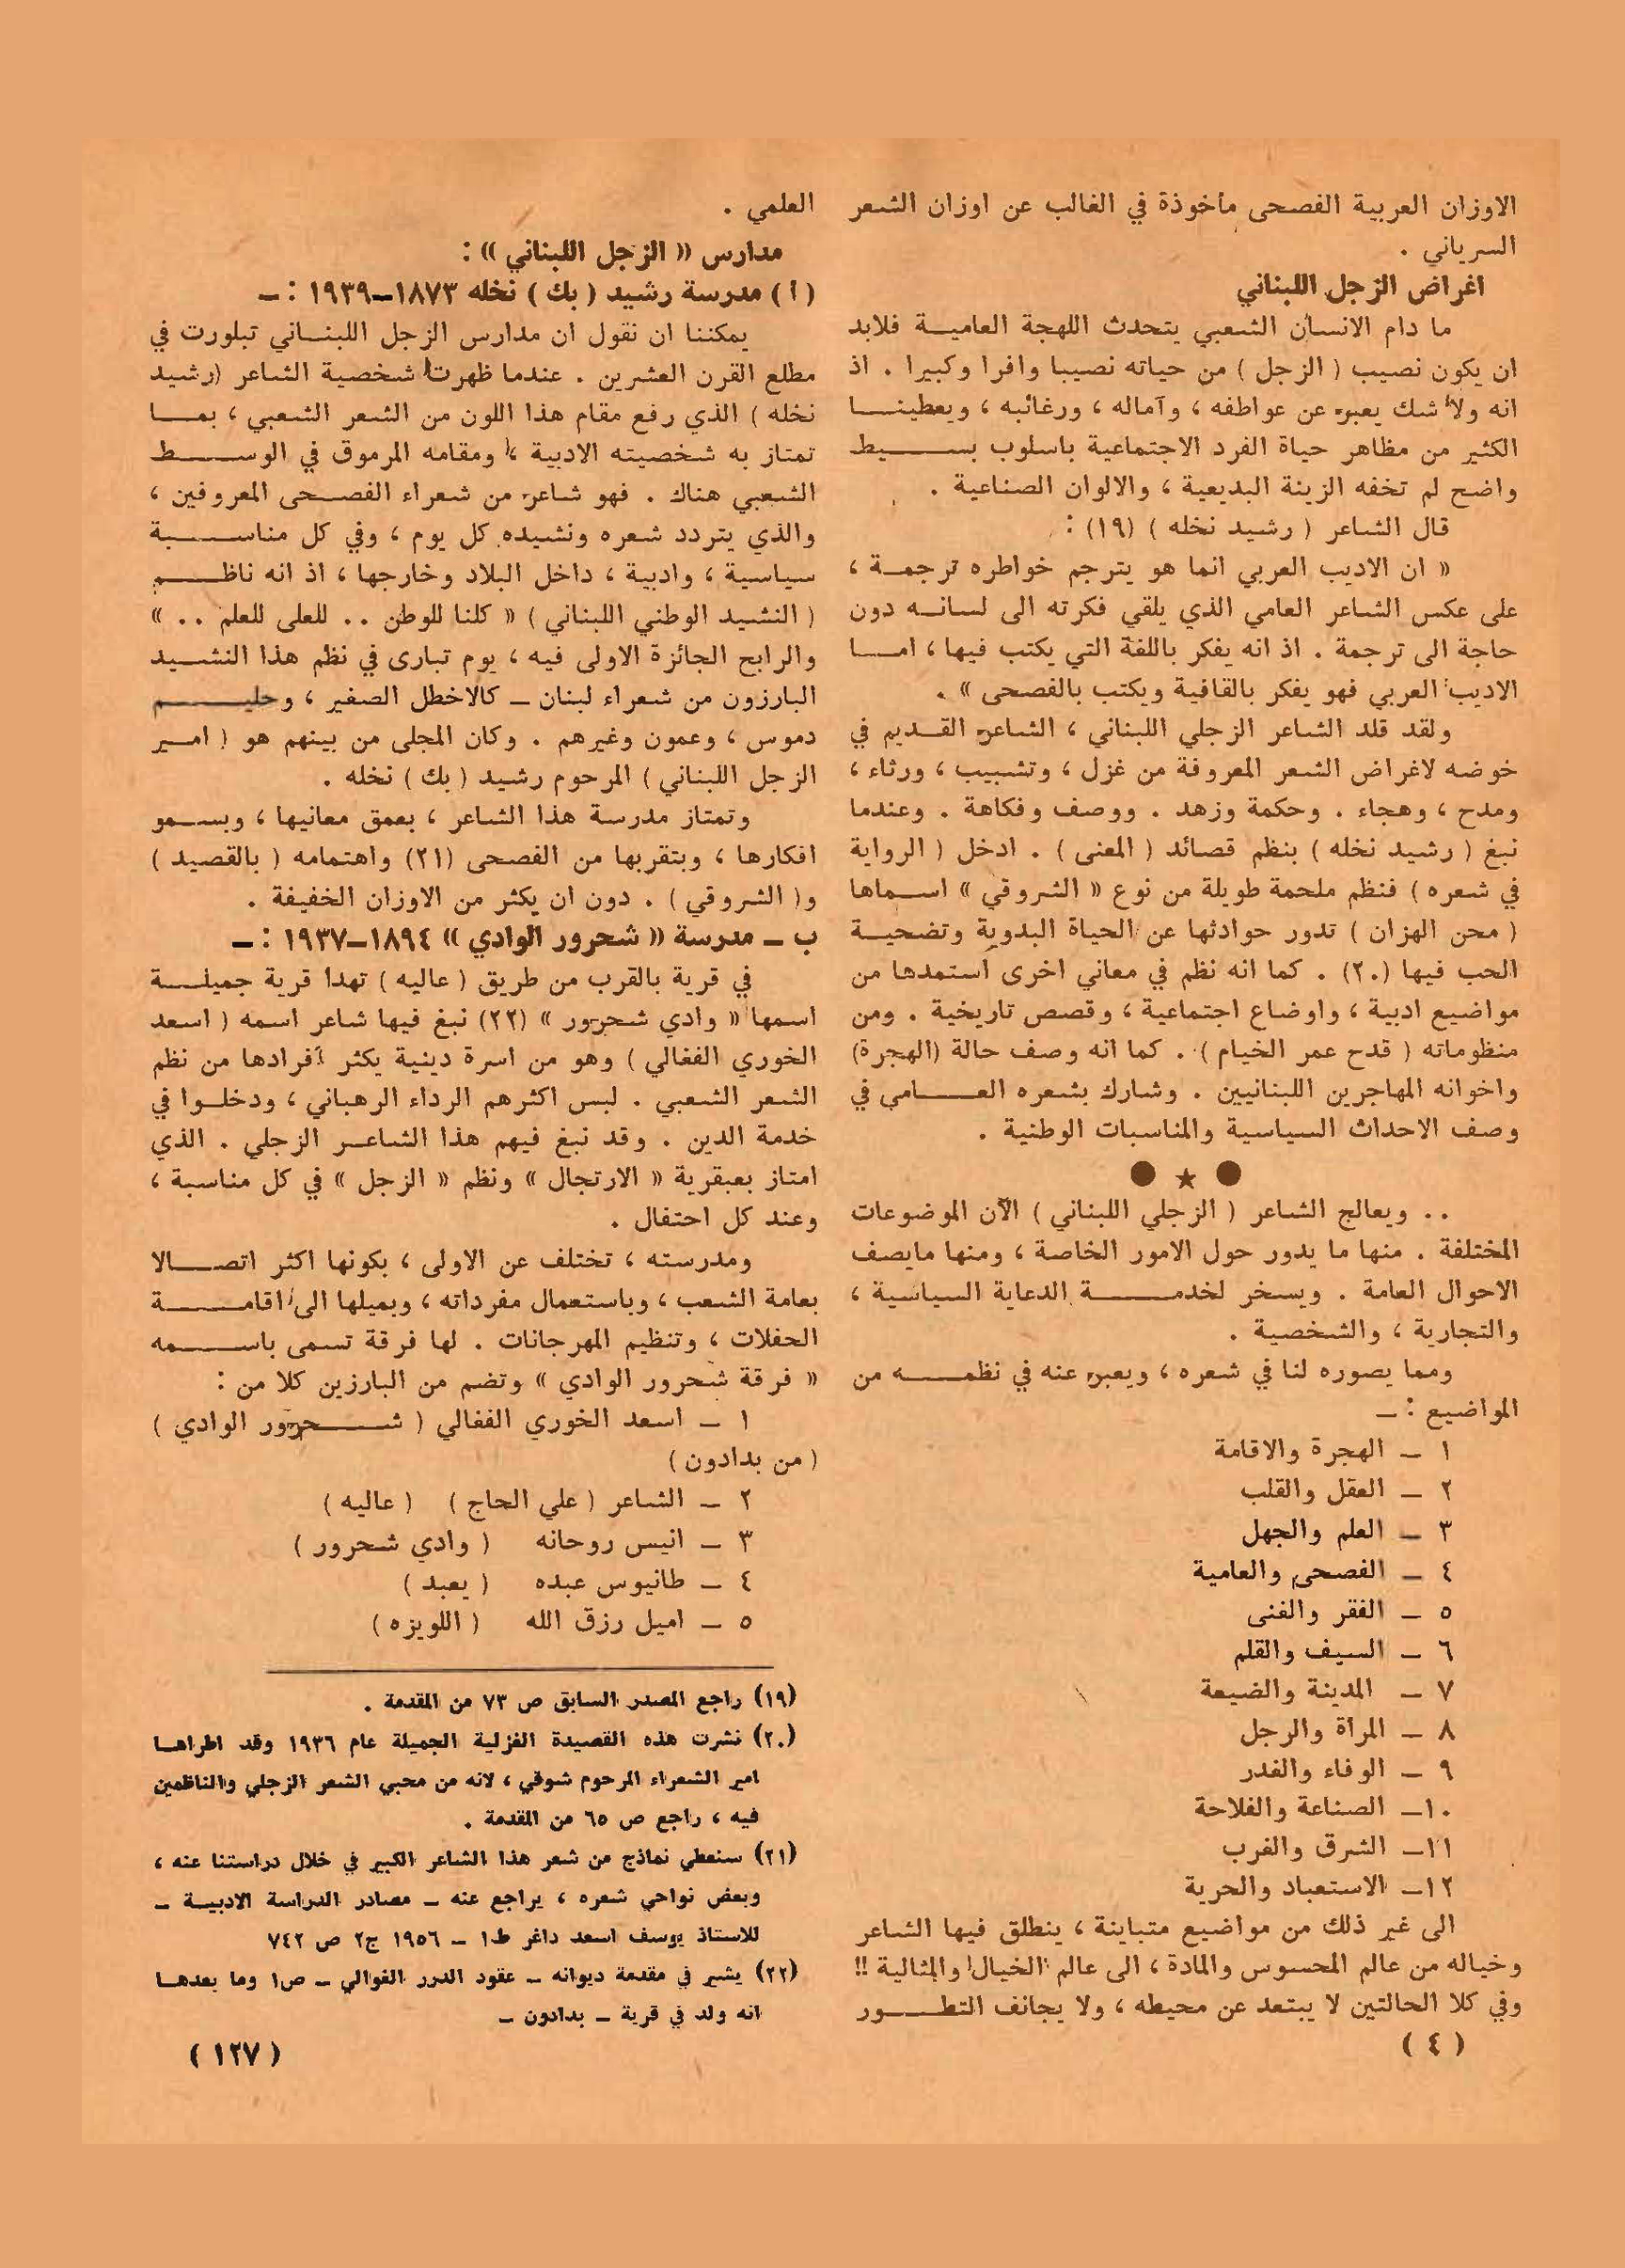 الاوزان العربية الفصحى مأخوذة في الغالب عن اوزان الشعر
السرياني .
اغراض الزجل اللبناني
ما دام الانسان الشعبي يتحدث اللهجة العامية فلابد
ان يكون نصيب ( الزجل ) من حياته نصيبا وافرا وكبيرا . اذ
انه ولا شك يعبر عن عواطفه ، وآماله ، ورغائبه ، ويعطينا
الكثير من مظاهر حياة الفرد الاجتماعية باسلوب بسيط
واضح لم تخفه الزينة البديعية ، والالوان الصناعية .
قال الشاعر ( رشيد نخله ) (١٩) :
« ان الاديب العربي انما هو يترجم خواطره ترجمة ،
على عكس الشاعر العامي الذي يلقي فكرته الى لسانه دون
حاجة الى ترجمة . اذ انه يفكر باللغة التي يكتب فيها ، اما
الاديب العربي فهو يفكر بالقافية ويكتب بالفصحى » .
ولقد قلد الشاعر الزجلي اللبناني ، الشاعر القديم في
خوضه لاغراض الشعر المعروفة من غزل ، وتشبيب ، ورثاء ،
ومدح ، وهجاء . وحكمة وزهد . ووصف وفكاهة . وعندما
نبغ ( رشيد نخله ) بنظم قصائد ( المعنى ) . ادخل ( الرواية
في شعره ) فنظم ملحمة طويلة من نوع « الشروقي » اسماها
( محن الهزان ) تدور حوادثها عن الحياة البدوية وتضحية
الحب فيها (٢٠) . كما انه نظم في معاني اخرى استمدها من
مواضيع ادبية ، واوضاع اجتماعية ، وقصص تاريخية . ومن
منظوماته ( قدح عمر الخيام ) . كما انه وصف حالة (الهجرة)
واخوانه المهاجرين اللبنانيين . وشارك بشعره العامي في
وصف الاحداث السياسية والمناسبات الوطنية .
● ★ ●
. . ويعالج الشاعر ( الزجلي اللبناني ) الآن الموضوعات
المختلفة . منها ما يدور حول الامور الخاصة ، ومنها مايصف
الاحوال العامة . ويسخر لخدمة الدعاية السياسية ،
والتجارية ، والشخصية .
ومما يصوره لنا في شعره ، ويعبر عنه في نظمه من
المواضيع : ــ
١ ــ الهجرة والاقامة
٢ ــ العقل والقلب
٣ ــ العلم والجهل
٤ ــ الفصحى والعامية
٥ ــ الفقر والغنى
٦ ــ السيف والقلم
٧ ــ المدينة والضيعة
٨ ــ المرأة والرجل
٩ ــ الوفاء والغدر
١٠ــ الصناعة والفلاحة
١١ــ الشرق والغرب
١٢ــ الاستعباد والحرية
الى غير ذلك من مواضيع متباينة ، ينطلق فيها الشاعر
وخياله من عالم المحسوس والمادة ، الى عالم الخيال والمثالية !!
وفي كلا الحالتين لا يبتعد عن محيطه ، ولا يجانف التطور
( ٤ )
العلمي .
مدارس « الزجل اللبناني » :
( ا ) مدرسة رشيد ( بك ) نخله ١٨٧٣ــ١٩٣٩ : ــ
يمكننا ان نقول ان مدارس الزجل اللبناني تبلورت في
مطلع القرن العشرين . عندما ظهرت شخصية الشاعر (رشيد
نخله ) الذي رفع مقام هذا اللون من الشعر الشعبي ، بما
تمتاز به شخصيته الادبية ، ومقامه المرموق في الوسط
الشعبي هناك . فهو شاعر من شعراء الفصحى المعروفين ،
والذي يتردد شعره ونشيده كل يوم ، وفي كل مناسبة
سياسية ، وادبية ، داخل البلاد وخارجها ، اذ انه ناظم
( النشيد الوطني اللبناني ) « كلنا للوطن . . للعلى للعلم . . »
والرابح الجائزة الاولى فيه ، يوم تبارى في نظم هذا النشيد
البارزون من شعراء لبنان ــ كالاخطل الصغير ، وحليم
دموس ، وعمون وغيرهم . وكان المجلى من بينهم هو ( امير
الزجل اللبناني ) المرحوم رشيد ( بك ) نخله .
وتمتاز مدرسة هذا الشاعر ، بعمق معانيها ، وبسمو
افكارها ، وبتقربها من الفصحى (٢١) واهتمامه ( بالقصيد )
و( الشروقي ) . دون ان يكثر من الاوزان الخفيفة .
ب ــ مدرسة « شحرور الوادي » ١٨٩٤ــ١٩٣٧ : ــ
في قرية بالقرب من طريق ( عاليه ) تهدا قرية جميلة
اسمها « وادي شحرور » (٢٢) نبغ فيها شاعر اسمه ( اسعد
الخوري الفغالي ) وهو من اسرة دينية يكثر افرادها من نظم
الشعر الشعبي . لبس اكثرهم الرداء الرهباني ، ودخلوا في
خدمة الدين . وقد نبغ فيهم هذا الشاعر الزجلي . الذي
امتاز بعبقرية « الارتجال » ونظم « الزجل » في كل مناسبة ،
وعند كل احتفال .
ومدرسته ، تختلف عن الاولى ، بكونها اكثر اتصالا
بعامة الشعب ، وباستعمال مفرداته ، وبميلها الى اقامة
الحفلات ، وتنظيم المهرجانات . لها فرقة تسمى باسمه
« فرقة شحرور الوادي » وتضم من البارزين كلا من :
١ ــ اسعد الخوري الفغالي ( شحرور الوادي )
( من بدادون )
٢ ــ الشاعر ( علي الحاج ) ( عاليه )
٣ ــ انيس روحانه ( وادي شحرور )
٤ ــ طانيوس عبده ( يعبد )
٥ ــ اميل رزق الله ( اللويزه )
(١٩) راجع المصدر السابق ص ٧٣ من المقدمة .
(٢٠) نشرت هذه القصيدة الغزلية الجميلة عام ١٩٣٦ وقد اطراها
امير الشعراء المرحوم شوقي ، لانه من محبي الشعر الزجلي والناظمين
فيه ، راجع ص ٦٥ من المقدمة .
(٢١) سنعطي نماذج من شعر هذا الشاعر الكبير في خلال دراستنا عنه ،
وبعض نواحي شعره ، يراجع عنه ــ مصادر الدراسة الادبية ــ
للاستاذ يوسف اسعد داغر ط١ ــ ١٩٥٦ ج٢ ص ٧٤٢
(٢٢) يشير في مقدمة ديوانه ــ عقود الدرر الغوالي ــ ص١ وما بعدها
انه ولد في قرية ــ بدادون ــ
( ١٢٧ )